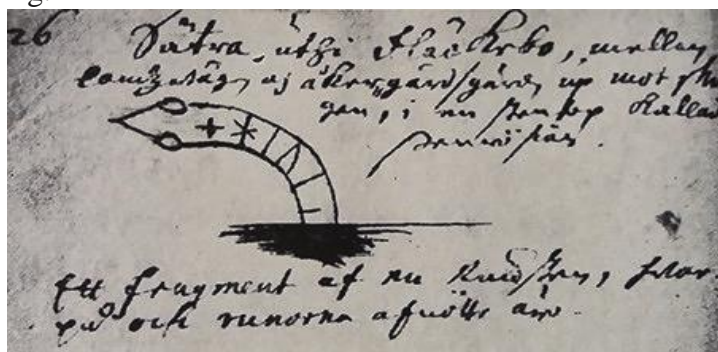 26 Sätra, uthi Fläckebo, mellan
landzwäg och åkergärdsgård up mot sko
gen, i en stenrös kallad
Ett fragment af en Runsten, hwar
på och runorna afnötte äro.